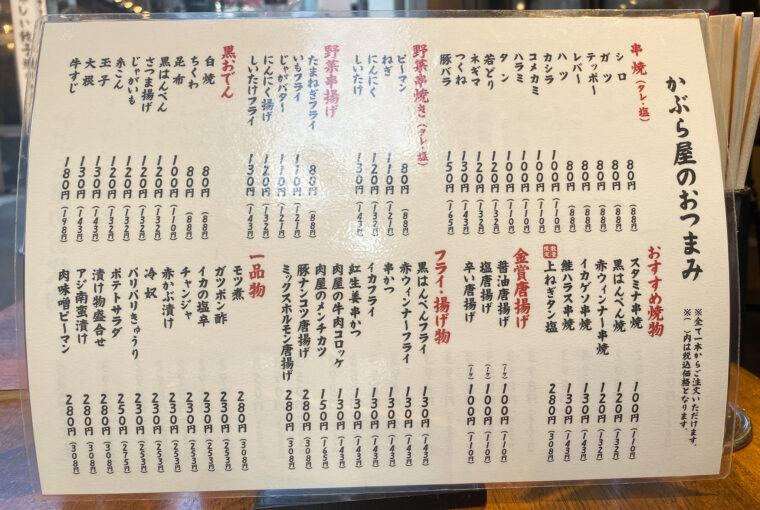 かぶら屋のおつまみ
※全て一本からご注文いただけます。
※( )内は税込価格となります。
串焼(タレ・塩)
シロ 80円(88円)
ガツ 80円(88円)
テッポー 80円(88円)
レバー 80円(88円)
ハツ 80円(88円)
カシラ 100円(110円)
コメカミ 100円(110円)
ハラミ 100円(110円)
タン 100円(110円)
若どり 120円(132円)
ネギマ 120円(132円)
つくね 130円(143円)
豚バラ 150円(165円)
野菜串焼き(タレ・塩)
ピーマン 80円(88円)
ねぎ 110円(121円)
にんにく 120円(132円)
しいたけ 130円(143円)
野菜串揚げ
たまねぎフライ 80円(88円)
いもフライ 110円(121円)
じゃがバター 110円(121円)
にんにく揚げ 120円(132円)
しいたけフライ 130円(143円)
黒おでん
白焼 80円(88円)
ちくわ 80円(88円)
昆布 100円(110円)
黒はんぺん 120円(132円)
さつま揚げ 120円(132円)
じゃがいも 120円(132円)
糸こん 120円(132円)
玉子 130円(143円)
大根 130円(143円)
牛すじ 180円(198円)
おすすめ焼物
スタミナ串焼 100円(110円)
黒はんぺん焼 120円(132円)
赤ウィンナー串焼 120円(132円)
イカゲソ串焼 130円(143円)
鮭ハラス串焼 130円(143円)
数量限定 上ねぎタン塩 280円(308円)
金賞唐揚げ
醤油唐揚げ(1ケ) 100円(110円)
塩唐揚げ(1ケ) 100円(110円)
辛い唐揚げ(1ケ) 100円(110円)
フライ・揚げ物
黒はんぺんフライ 130円(143円)
赤ウィンナーフライ 130円(143円)
串かつ 130円(143円)
イカフライ 130円(143円)
紅生姜串かつ 130円(143円)
肉屋の牛肉コロッケ 130円(143円)
肉屋のメンチカツ 150円(165円)
豚ナンコツ唐揚げ 280円(308円)
ミックスホルモン唐揚げ 280円(308円)
一品物
モツ煮 280円(308円)
ガツポン酢 230円(253円)
イカの塩辛 230円(253円)
チャンジャ 230円(253円)
赤かぶ漬け 230円(253円)
冷奴 230円(253円)
バリバリきゅうり 230円(253円)
ポテトサラダ 250円(275円)
漬け物盛合せ 280円(308円)
アジ南蛮漬け 280円(308円)
肉味噌ピーマン 280円(308円)